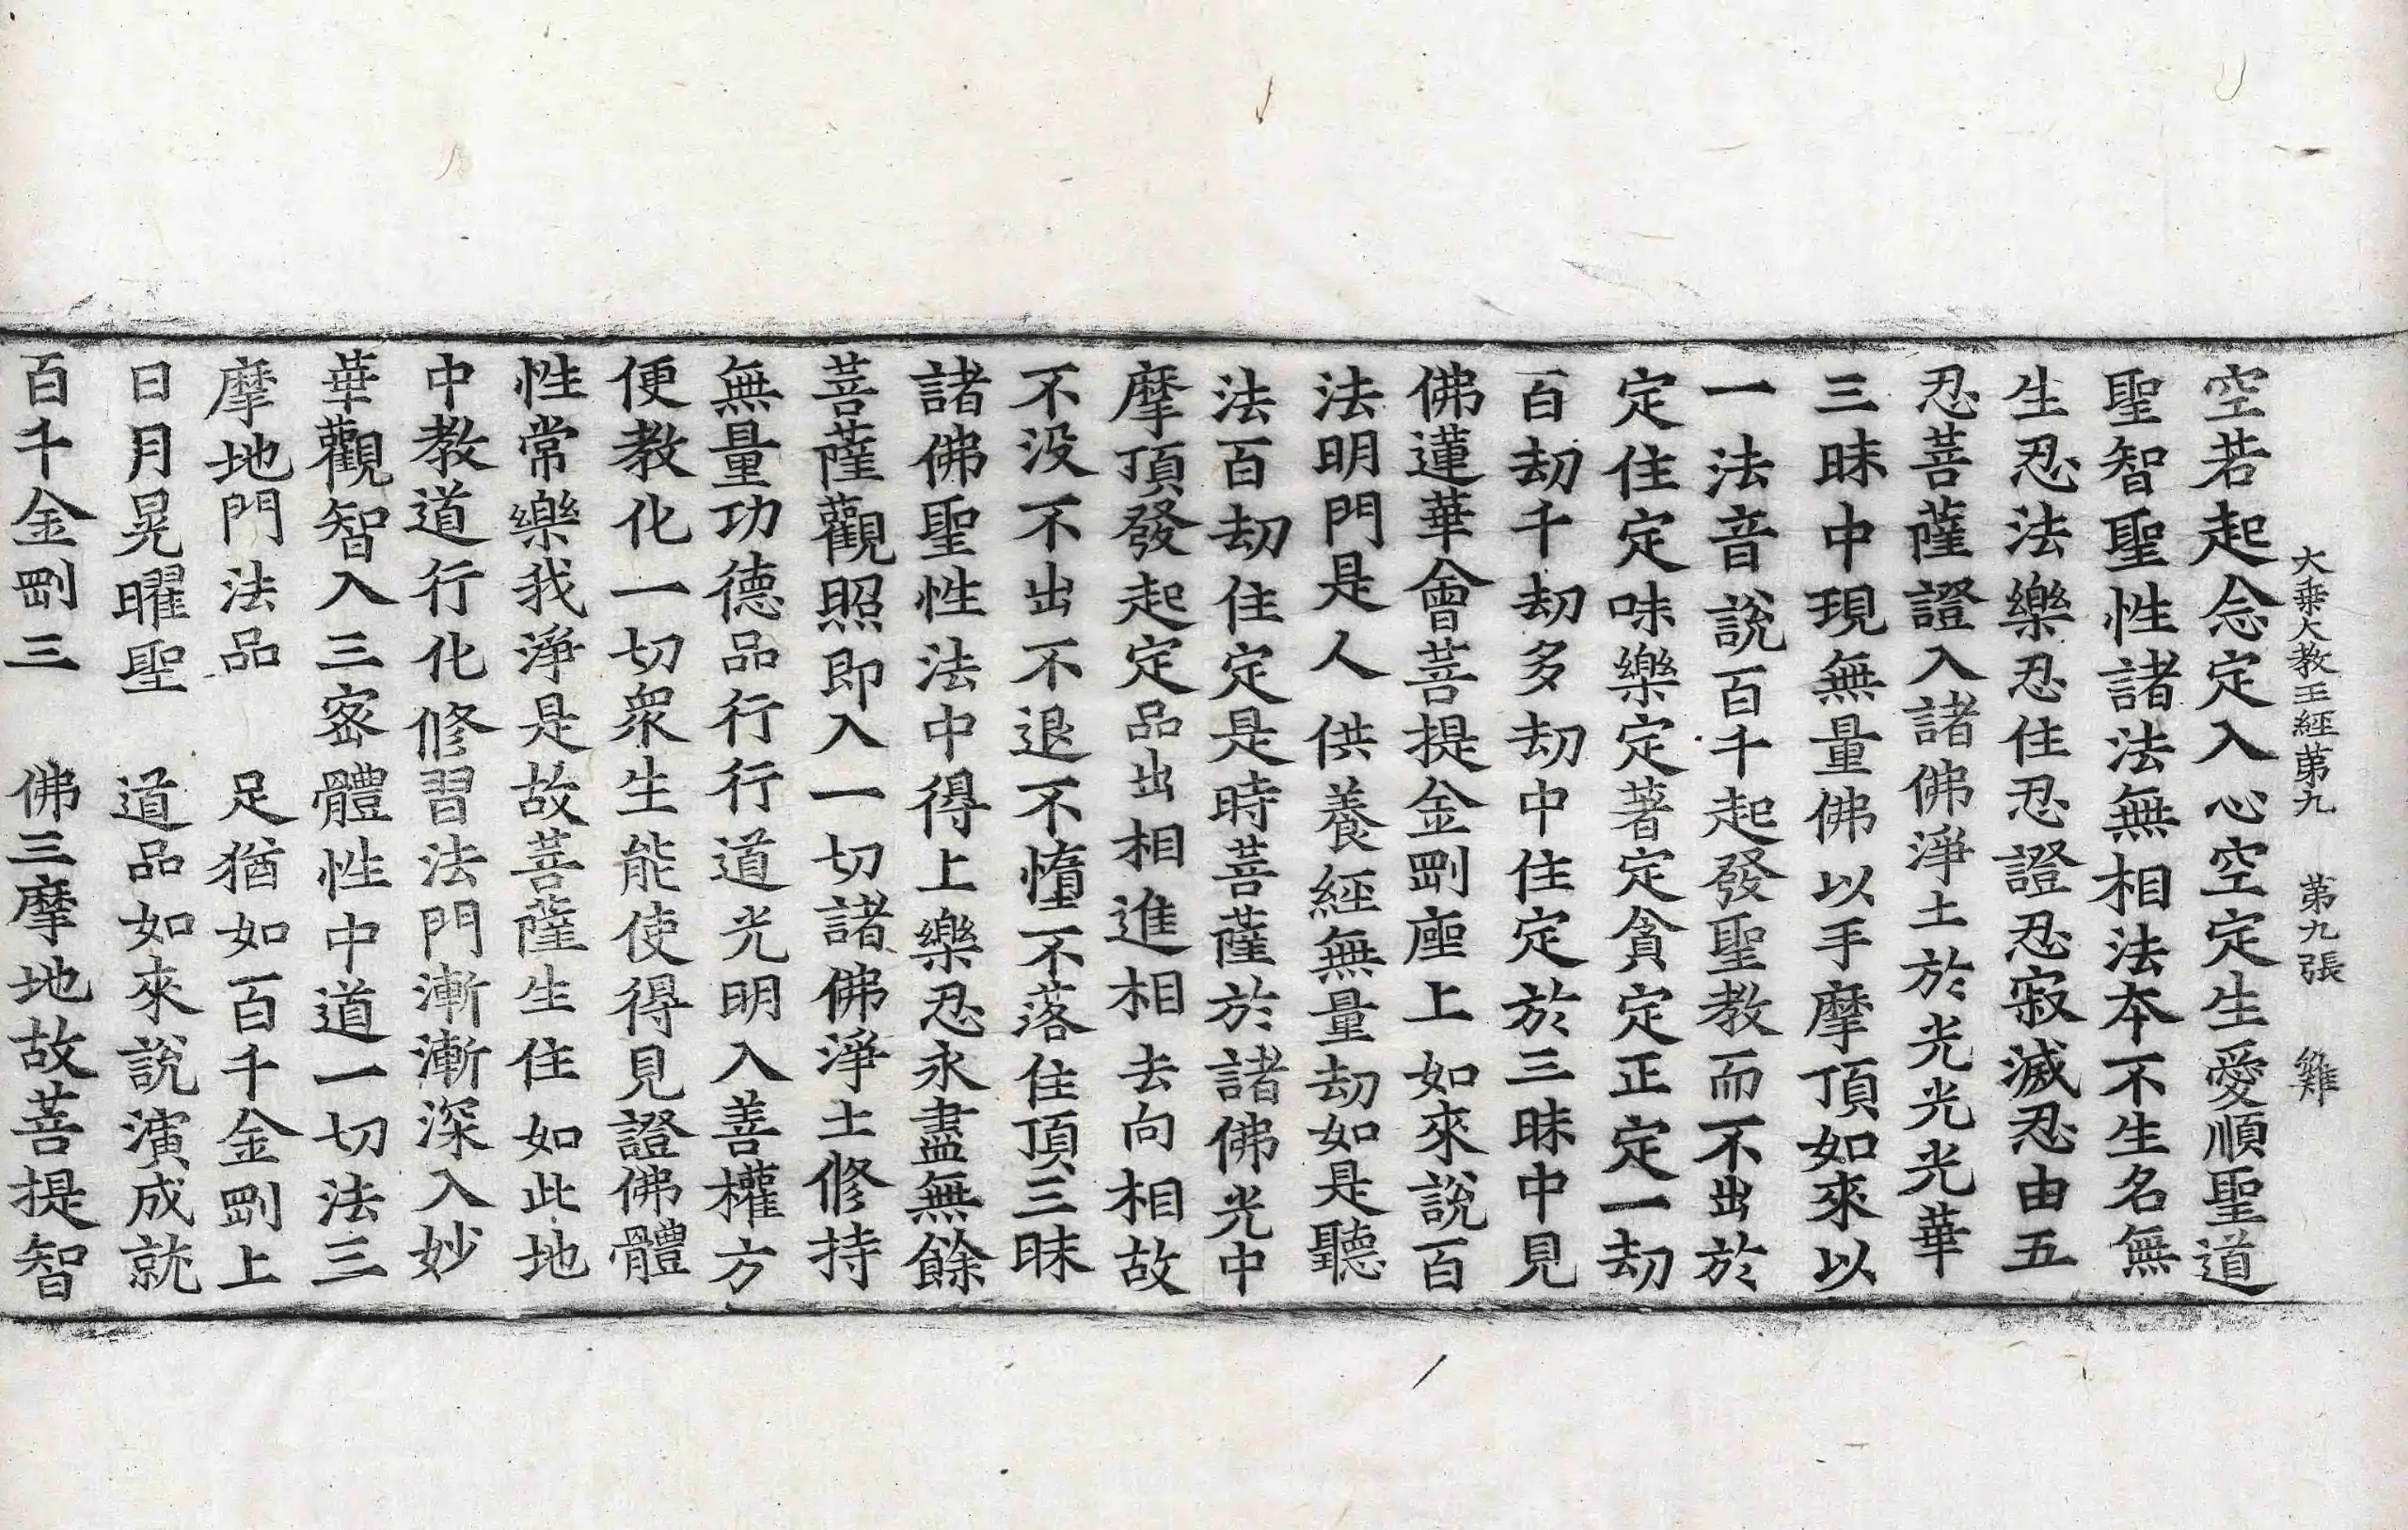 大乘大教王經第九 第九張 雞
空若起念定入心空定生愛順聖道
聖智聖性諸法無相法本不生名無
生忍法樂忍住忍證忍寂滅忍由五
忍菩薩證入諸佛淨土於光光光華
三昧中現無量佛以手摩頂如來以
一法音說百千起發聖教而不出於
定住定味樂定著定貪定正定一劫
百劫千劫多劫中住定於三昧中見
佛蓮華會菩提金剛座上如來說百
法明門是人供養經無量劫如是聽
法百劫住定是時菩薩於諸佛光中
摩頂發起定品出相進相去向相故
不沒不出不退不惰不落住頂三昧
諸佛聖性法中得上樂忍永盡無餘
菩薩觀照即入一切諸佛淨土修持
無量功德品行行道光明入善權方
便教化一切眾生能使得見證佛體
性常樂我淨是故菩薩生住如此地
中教道行化修習法門漸漸深入妙
華觀智入三密體性中道一切法三
摩地門法品 足猶如百千金剛上
日月晃曜聖 道品如來說演成就
百千金剛三 佛三摩地故菩提智